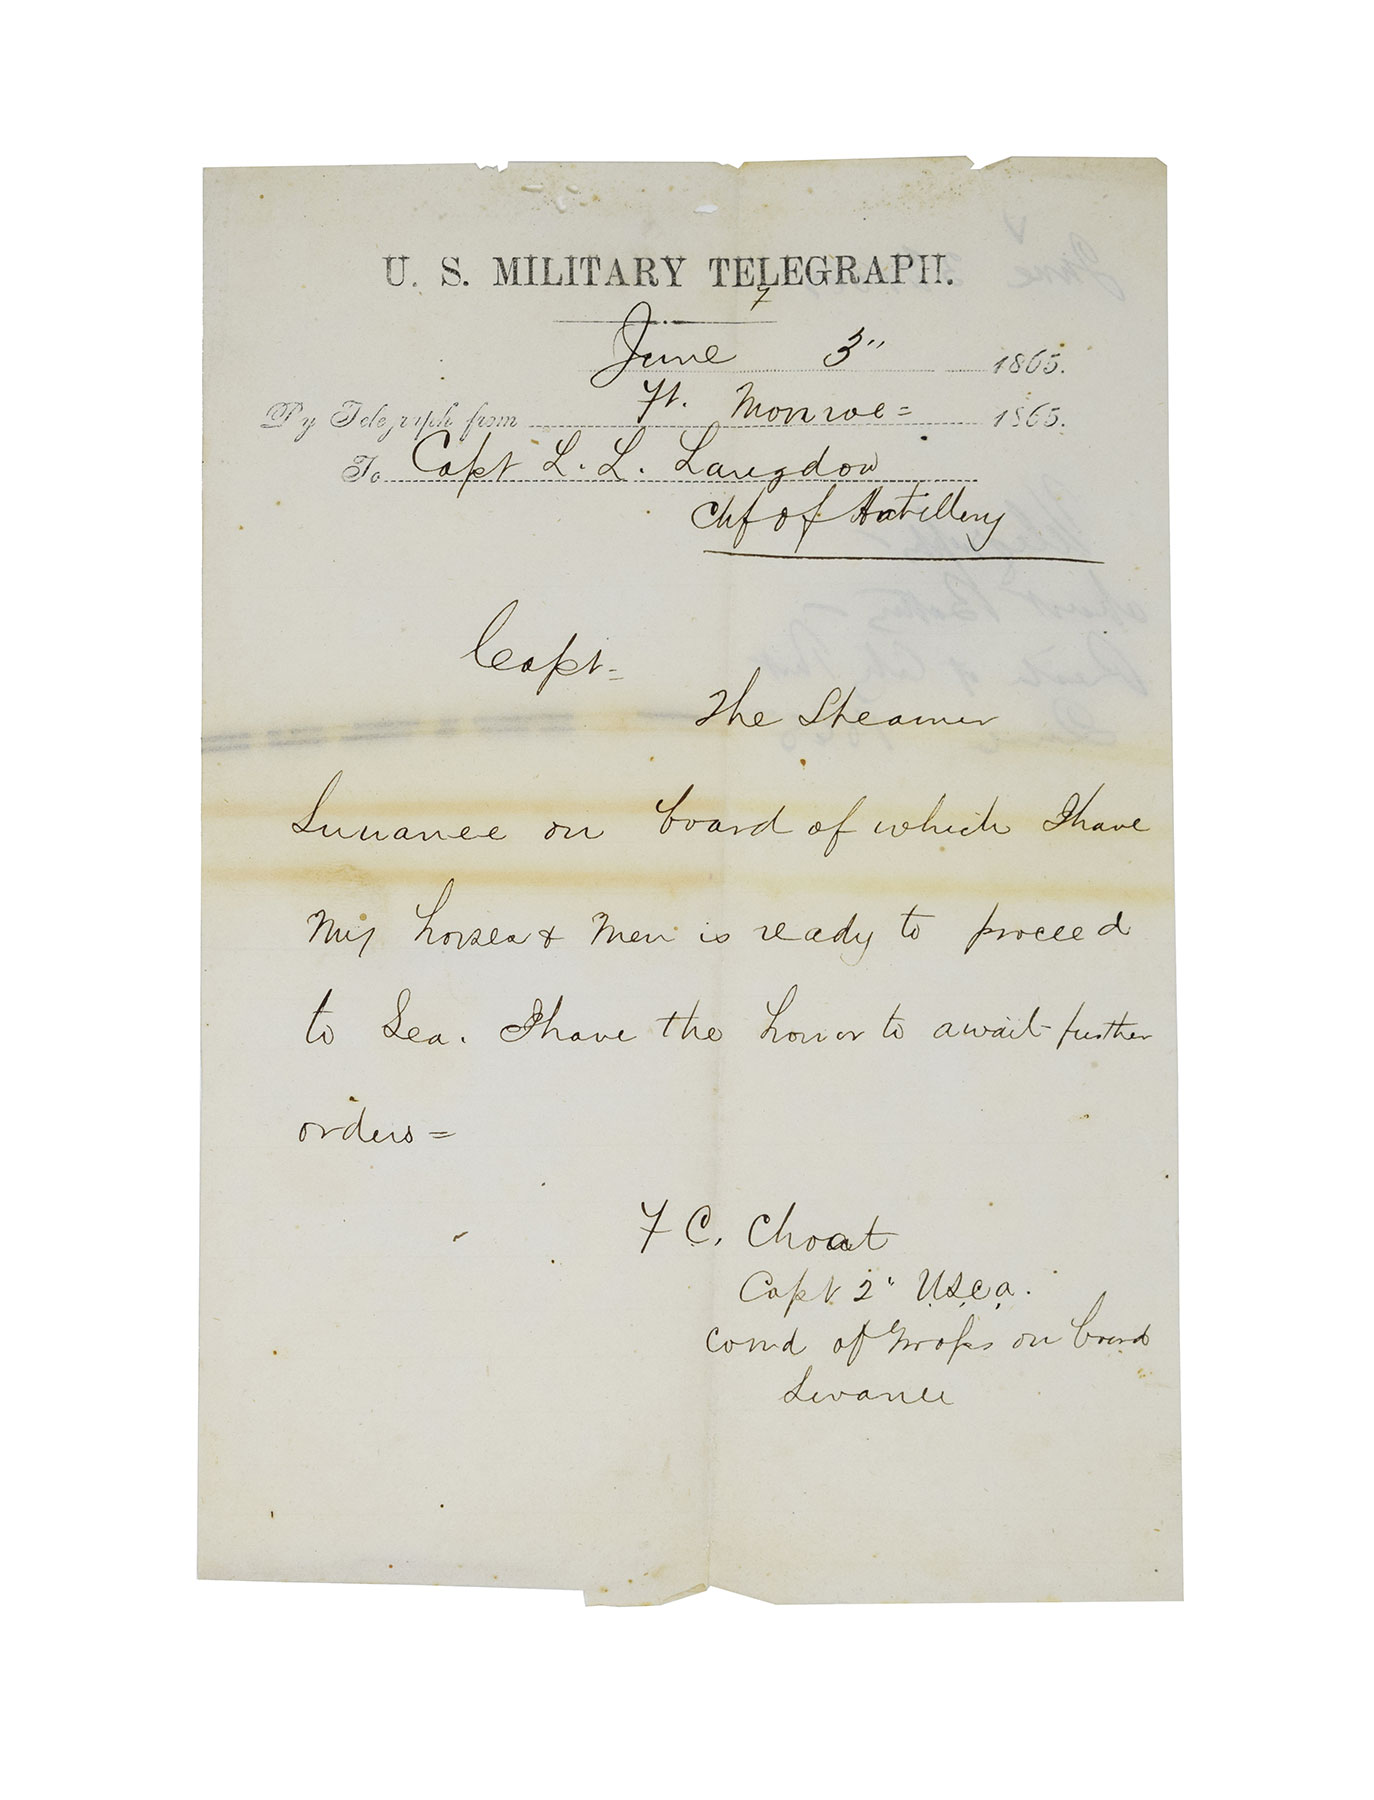 U. S. MILITARY TELEGRAPH.
7
June 3" 1865.
By Telegraph from Ft. Monroe = 1865.
To Capt L. L. Langdon
Chf of Artillery
Capt =
The Steamer
Suwanee on board of which I have
My horses & Men is ready to proceed
to Sea. I have the honor to await further
orders =
F C. Choat
Capt 2" U.S.C.A.
Comd of Troops on board
Swanee